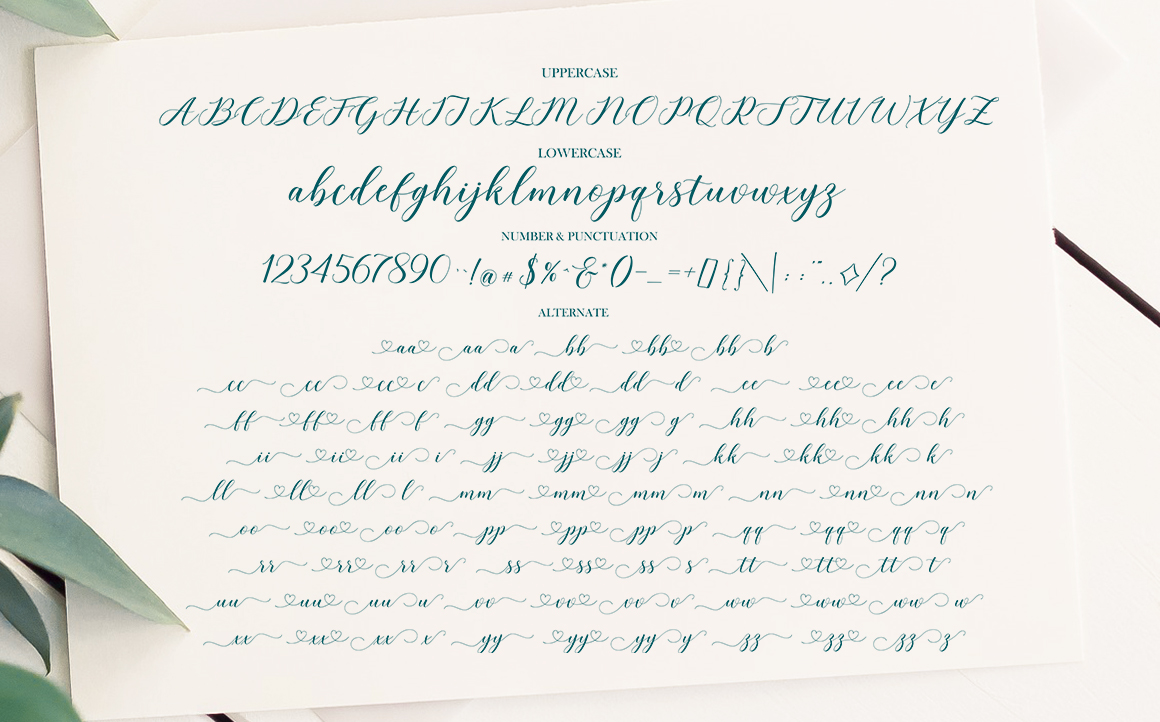 UPPERCASE
ABCDEFGHIJKLMNOPQRSTUVWXYZ
LOWERCASE
abcdefghijklmnopqrstuvwxyz
NUMBER & PUNCTUATION
1234567890~`!@#$%^&*()-_=+[]{}\|:;"'.,<>/?
ALTERNATE
aa aa a bb bb bb b
cc cc cc c dd dd dd d ee ee ee e
ff ff ff f gg gg gg g hh hh hh h
ii ii ii i jj jj jj j kk kk kk k
ll ll ll l mm mm mm m nn nn nn n
oo oo oo o pp pp pp p qq qq qq q
rr rr rr r ss ss ss s tt tt tt t
uu uu uu u vv vv vv v ww ww ww w
xx xx xx x yy yy yy y zz zz zz z